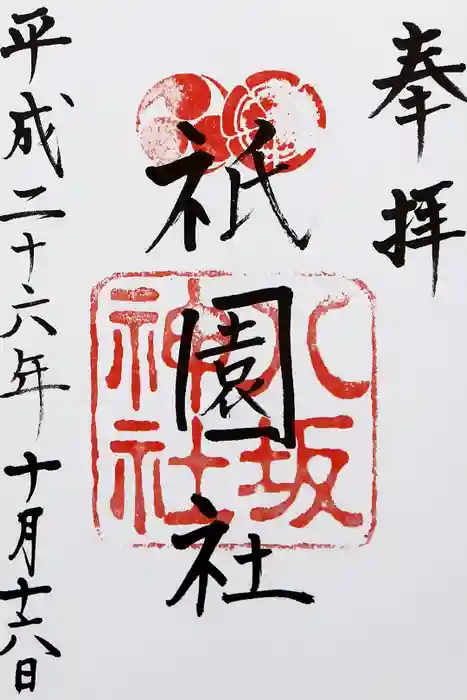 奉拝
祇園社
八坂
神社
平成二十六年十月十六日